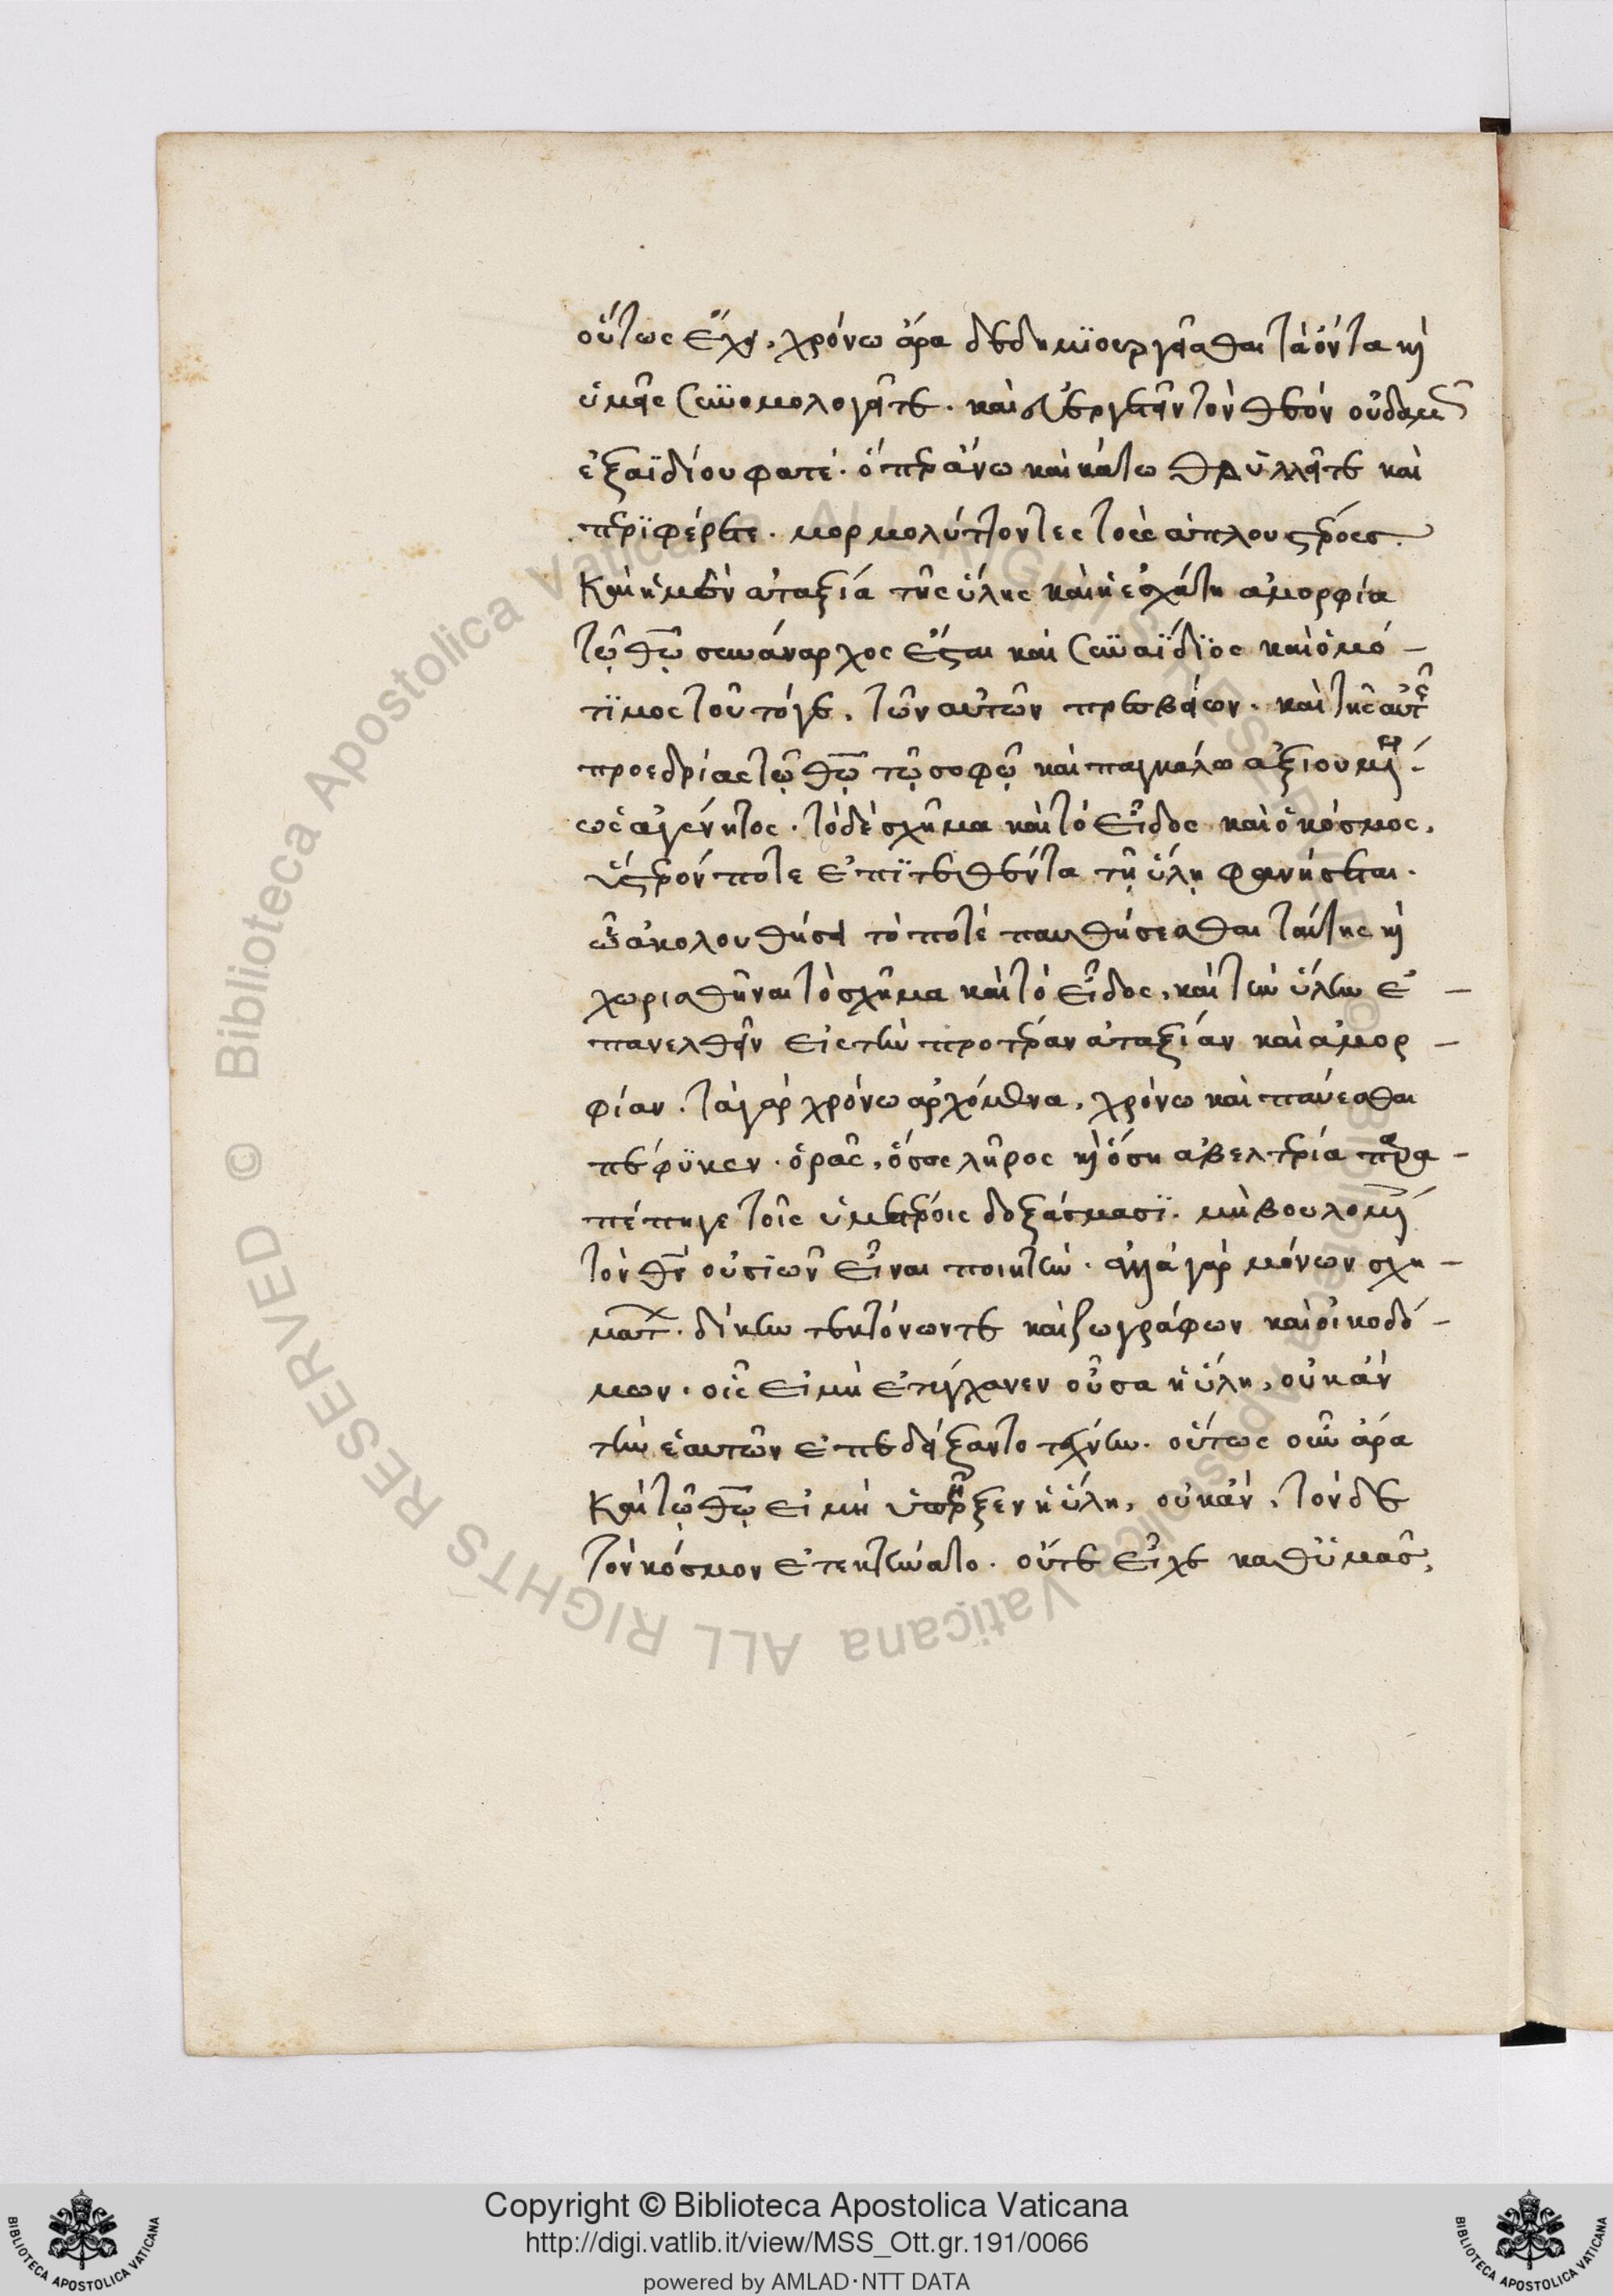 οὕτως ἔχει, χρόνω ἄρα δεδημϊουργεῖσθαι τὰ ὄντα κὶ
ὑμεῖς συνομολογεῖτε. καὶ εὐεργετεῖν τὸν θεὸν οὐδαμῶς
ἐξ αϊδίου φατέ. ὅπερ ἄνω καὶ κάτω θρυλλεῖτε καὶ
περϊφέρετε. μορμολύττοντες τοὺς ἁπλουστέρους.
Καὶ ἡ μὲν ἀταξία τῆς ὕλης καὶ ἡ ἐσχάτη ἀμορφία
τῷ θῷ συνάναρχος ἔσται καὶ συναΐδϊος καὶ ὁμό-
τϊμος τοῦτό γε. τῶν αὐτῶν πρεσβείων. καὶ τῆς αὐτῆς
προεδρίας τῷ θῷ τῷ σοφῷ καὶ παγκάλω ἀξιουμένη.
ὡς ἀγένητος. τὸ δὲ σχῆμα καὶ τὸ εἶδος καὶ ὁ κόσμος,
ὕστερόν ποτε ἐπϊτεθέντα τῇ ὕλῃ φανήσεται.
ὧ ἀκολουθήσει τὸ ποτὲ παυθήσεσθαι ταύτης κὶ
χωρισθῆναι τὸ σχῆμα καὶ τὸ εἶδος, καὶ τὴν ὕλην ἐ-
πανελθεῖν εἰς τὴν προτέραν ἀταξίαν καὶ ἀμορ-
φίαν. τὰ γὰρ χρόνω ἀρχόμενα, χρόνω καὶ παύεσθαι
πέφϋκεν. ὁρᾶς, ὅσος λῆρος κὶ ὅση ἀβελτερία παρα-
πέπηγε τοῖς ὑμετέροις δοξάσμασϊ. μὴ βουλομένοις
τὸν θν οὐσϊῶν εἶναι ποιητήν. ἀλλὰ γὰρ μόνων σχη-
μάτων. δίκην τεκτόνων τε καὶ ζωγράφων καὶ οἰκοδό-
μων. οἷς εἰ μὴ ἐτύγχανεν οὖσα ἡ ὕλη, οὐκ ἂν
τὴν ἑαυτῶν ἐπεδείξαντο τέχνην. οὕτως οὖν ἄρα
Καὶ τῷ θῷ εἰ μὴ ὑπῆρξεν ἡ ὕλη, οὐκ ἂν, τόνδε
τὸν κόσμον ἐτεκτήνατο. οὔτε εἶχε καθ ϋμᾶς,
Copyright © Biblioteca Apostolica Vaticana
http://digi.vatlib.it/view/MSS_Ott.gr.191/0066
powered by AMLAD·NTT DATA
BIBLIOTECA APOSTOLICA VATICANA
BIBLIOTECA APOSTOLICA VATICANA
© Biblioteca Apostolica Vaticana ALL RIGHTS RESERVED
© Biblioteca Apostolica Vaticana ALL RIGHTS RESERVED